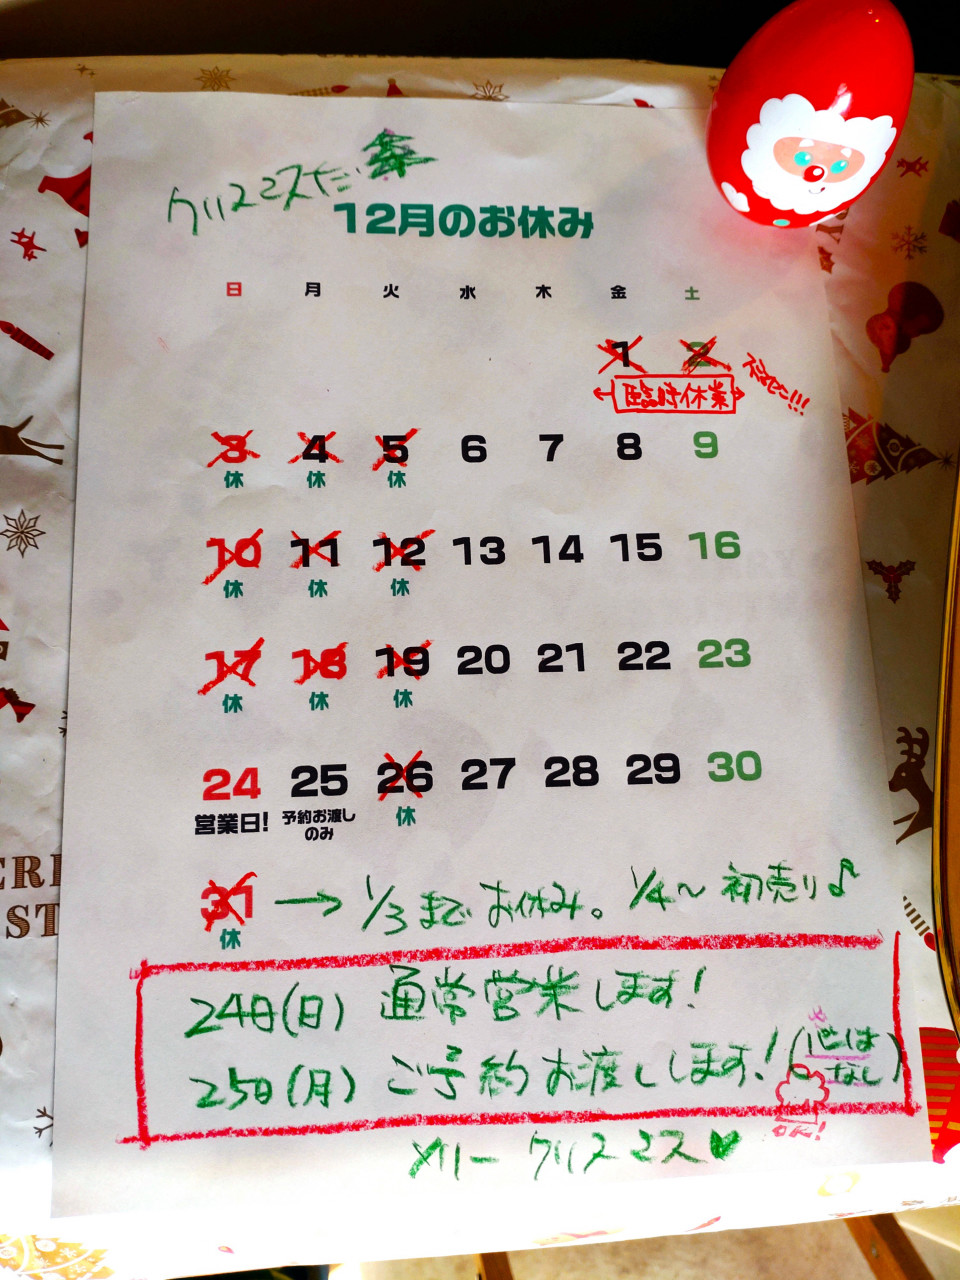 クリスマスだ
12月のお休み
日 月 火 水 木 金 土
1 2
臨時休業
3 4 5 6 7 8 9
休 休 休
10 11 12 13 14 15 16
休 休 休
17 18 19 20 21 22 23
休 休 休
24 25 26 27 28 29 30
営業日! 予約お渡しのみ 休
31 → 1/3までお休み。1/4〜初売り♪
休
24日(日) 通常営業します!
25日(月) ご予約お渡しします!(他はなし)
OK!
メリークリスマス♥
ST